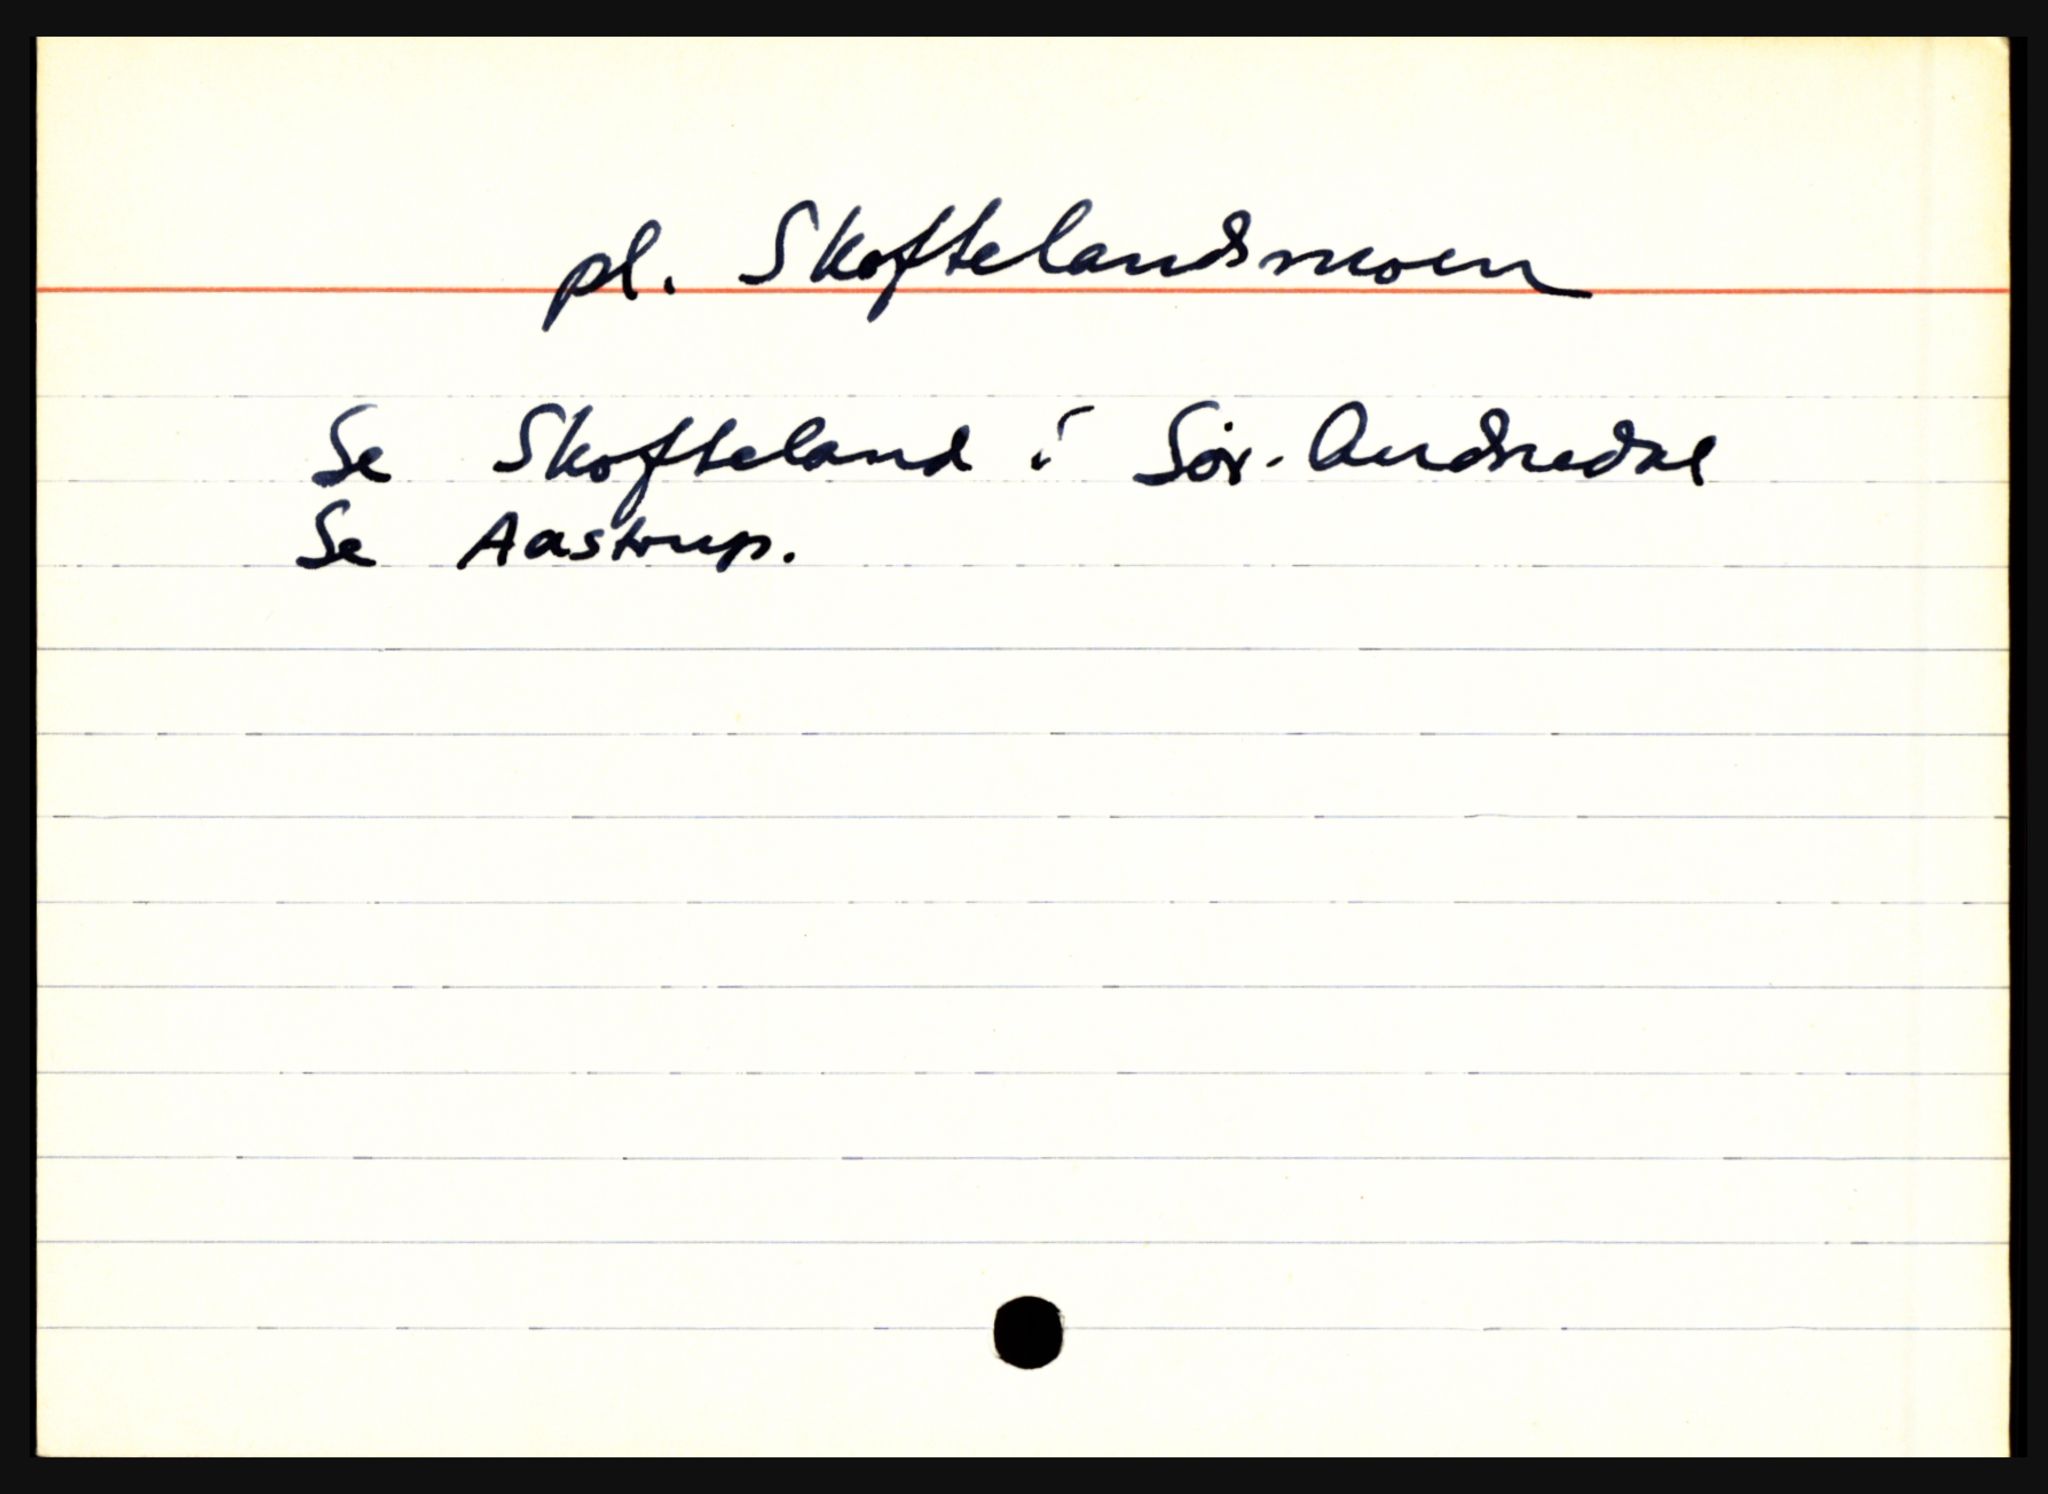 pl. Skoftelandsmoen
Se Skofteland i Sør-Audnedal
Se Aastrup.